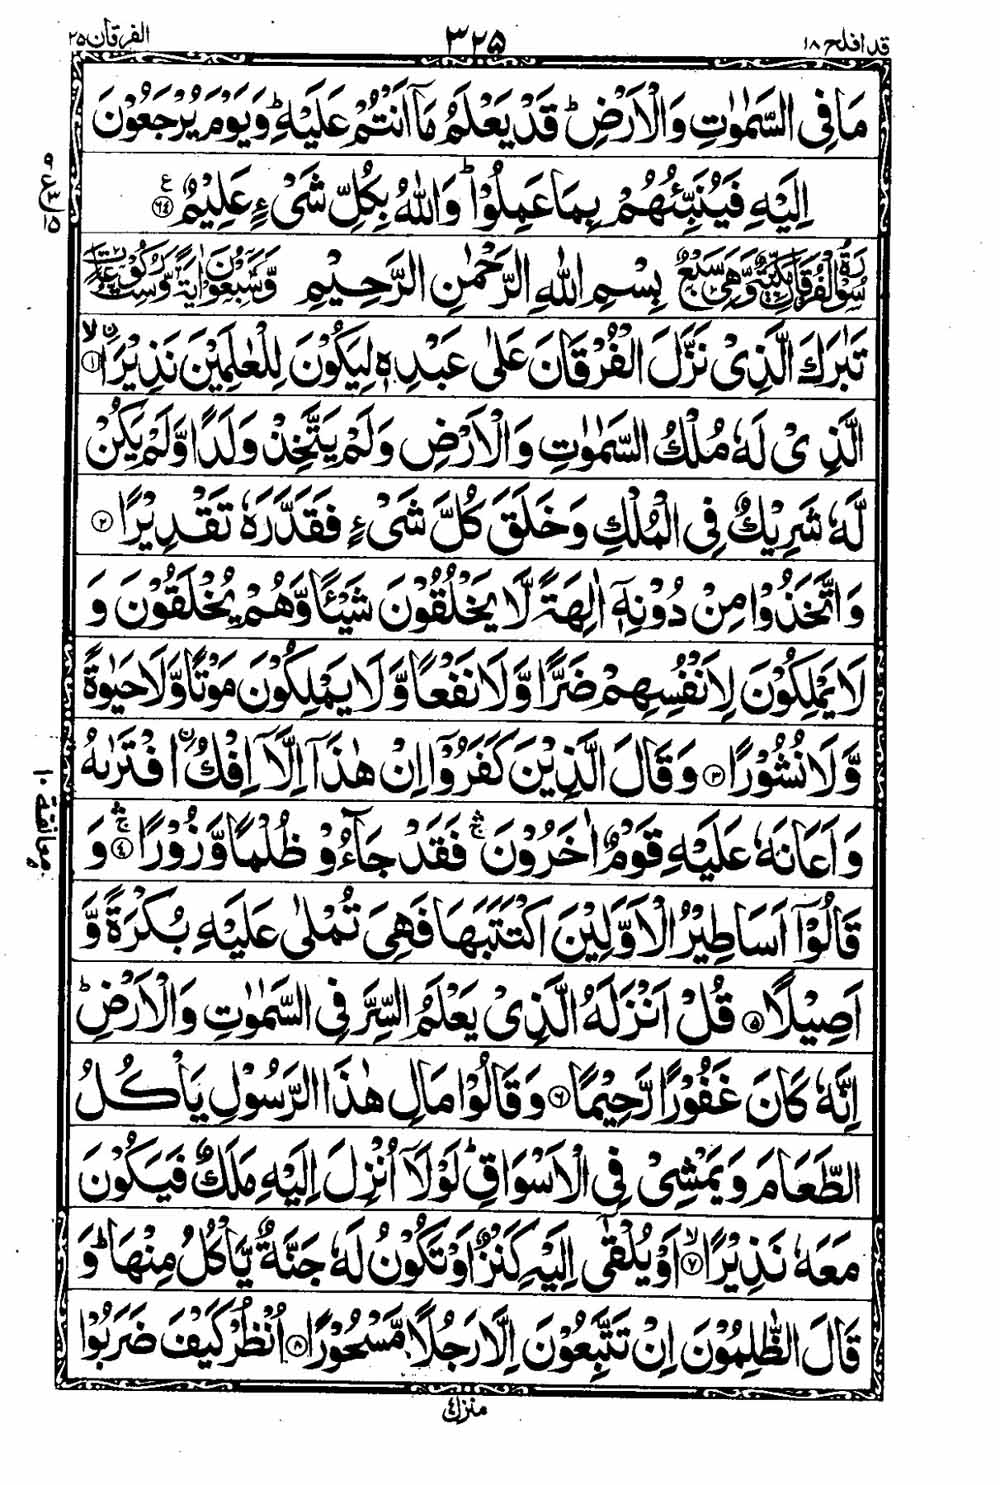 قد افلح ١٨ ٣٢۵ الفرقان ٢۵
مَا فِى السَّمٰوٰتِ وَالْاَرْضِ ؕ قَدْ يَعْلَمُ مَاۤ اَنْتُمْ عَلَيْهِ ؕ وَيَوْمَ يُرْجَعُوْنَ
اِلَيْهِ فَيُنَبِّئُهُمْ بِمَا عَمِلُوْا ؕ وَاللّٰهُ بِكُلِّ شَىْءٍ عَلِيْمٌ ﴿٦٤﴾ ع
٩ ع ١٥
سُوْرَةُ الْفُرْقَانِ مَكِّيَّةٌ وَّهِىَ سَبْعٌ بِسْمِ اللّٰهِ الرَّحْمٰنِ الرَّحِيْمِ وَّسَبْعُوْنَ اٰيَةً وَّسِتُّ رُكُوْعَاتٍ
تَبٰرَكَ الَّذِىْ نَزَّلَ الْفُرْقَانَ عَلٰى عَبْدِهٖ لِيَكُوْنَ لِلْعٰلَمِيْنَ نَذِيْرَا ۙ﴿١﴾
الَّذِىْ لَهٗ مُلْكُ السَّمٰوٰتِ وَالْاَرْضِ وَلَمْ يَتَّخِذْ وَلَدًا وَّلَمْ يَكُنْ
لَّهٗ شَرِيْكٌ فِى الْمُلْكِ وَخَلَقَ كُلَّ شَىْءٍ فَقَدَّرَهٗ تَقْدِيْرًا ﴿٢﴾
وَاتَّخَذُوْا مِنْ دُوْنِهٖۤ اٰلِهَةً لَّا يَخْلُقُوْنَ شَيْئًا وَّهُمْ يُخْلَقُوْنَ وَ
لَا يَمْلِكُوْنَ لِاَنْفُسِهِمْ ضَرًّا وَّلَا نَفْعًا وَّلَا يَمْلِكُوْنَ مَوْتًا وَّلَا حَيٰوةً
وَّلَا نُشُوْرًا ﴿٣﴾ وَقَالَ الَّذِيْنَ كَفَرُوْۤا اِنْ هٰذَاۤ اِلَّاۤ اِفْكُ ۨ افْتَرٰىهُ
وَاَعَانَهٗ عَلَيْهِ قَوْمٌ اٰخَرُوْنَ ۛۚ فَقَدْ جَآءُوْ ظُلْمًا وَّزُوْرًا ۛۚ﴿٤﴾ وَ
معانقة ١٠
قَالُوْۤا اَسَاطِيْرُ الْاَوَّلِيْنَ اكْتَتَبَهَا فَهِىَ تُمْلٰى عَلَيْهِ بُكْرَةً وَّ
اَصِيْلًا ﴿۵﴾ قُلْ اَنْزَلَهُ الَّذِىْ يَعْلَمُ السِّرَّ فِى السَّمٰوٰتِ وَالْاَرْضِ ؕ
اِنَّهٗ كَانَ غَفُوْرًا رَّحِيْمًا ﴿٦﴾ وَقَالُوْا مَالِ هٰذَا الرَّسُوْلِ يَاْكُلُ
الطَّعَامَ وَيَمْشِىْ فِى الْاَسْوَاقِ ؕ لَوْلَاۤ اُنْزِلَ اِلَيْهِ مَلَكٌ فَيَكُوْنَ
مَعَهٗ نَذِيْرًا ۙ﴿٧﴾ اَوْ يُلْقٰۤى اِلَيْهِ كَنْزٌ اَوْ تَكُوْنُ لَهٗ جَنَّةٌ يَّاْكُلُ مِنْهَا ؕ وَ
قَالَ الظّٰلِمُوْنَ اِنْ تَتَّبِعُوْنَ اِلَّا رَجُلًا مَّسْحُوْرًا ﴿٨﴾ اُنْظُرْ كَيْفَ ضَرَبُوْا
منزل ٤